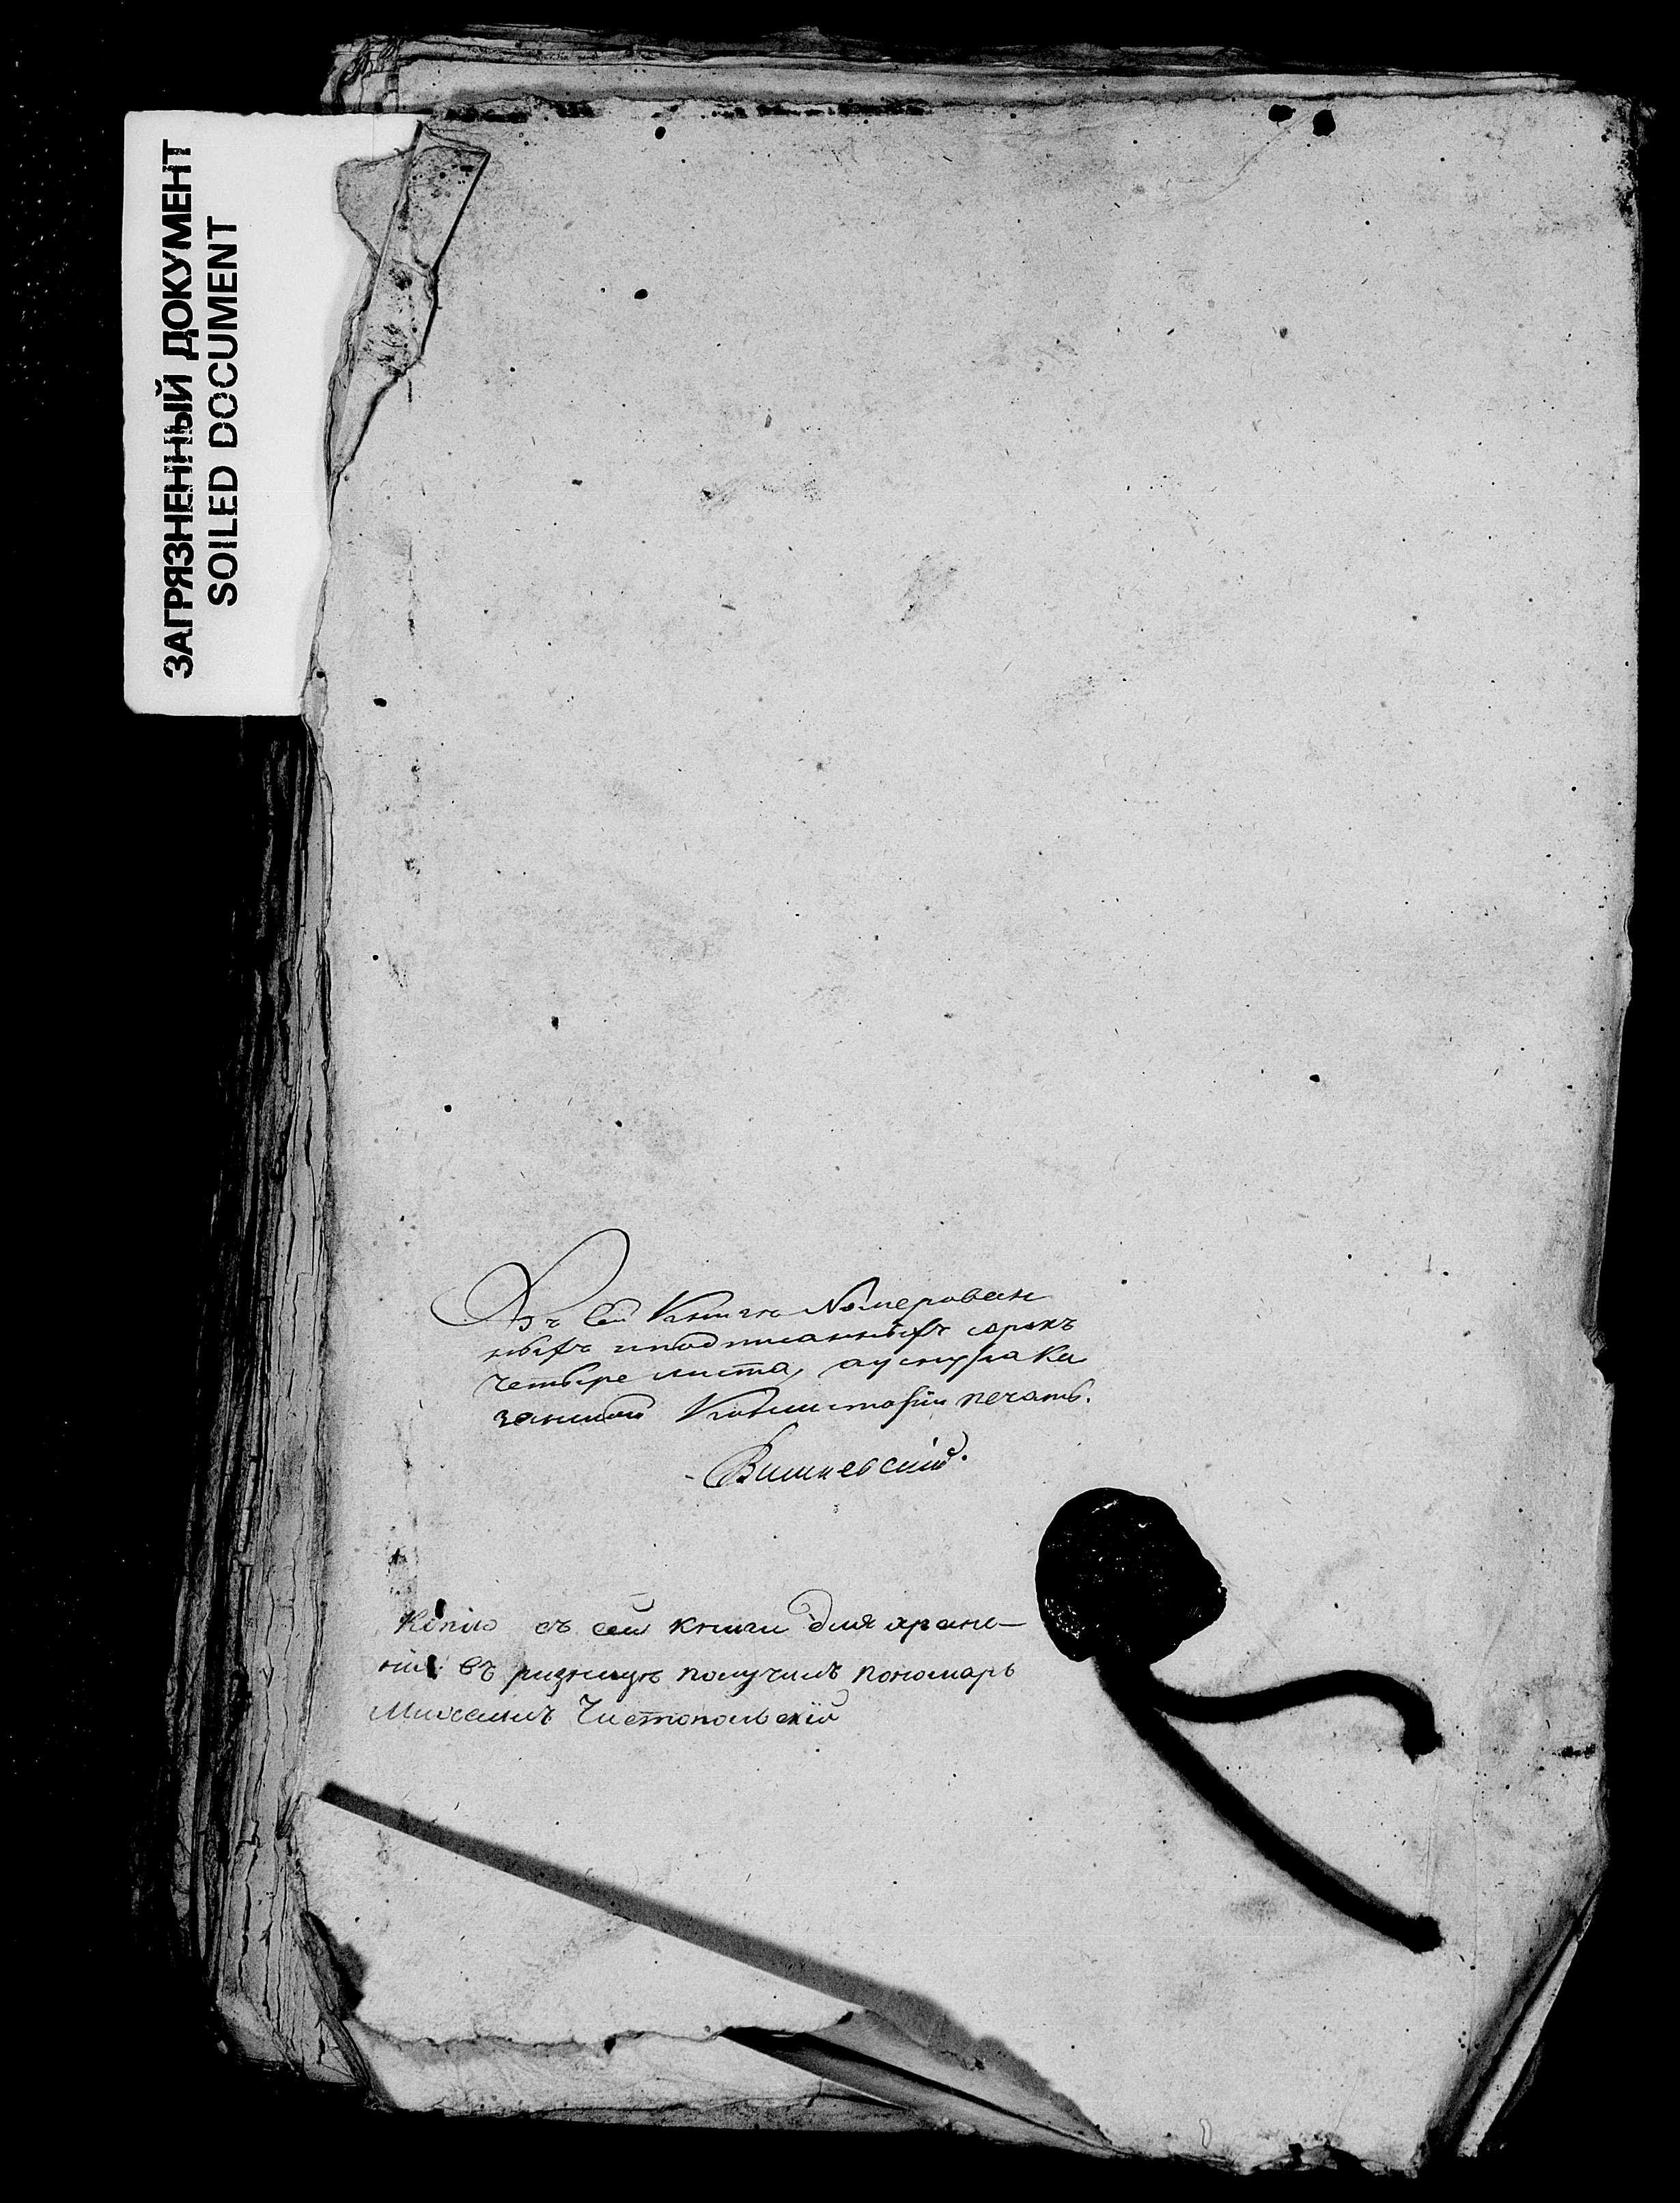 ЗАГРЯЗНЕННЫЙ ДОКУМЕНТ
SOILED DOCUMENT
Въ сей Книгѣ Номерован
ныхъ и подписанныхъ сорокъ
четыре листа, а у снура Ка
занской Консисторіи печать.
Вишневскій.
Копію съ сей книги для хране-
нія въ ризницѣ получилъ пономарь
Михаилъ Чистопольскій